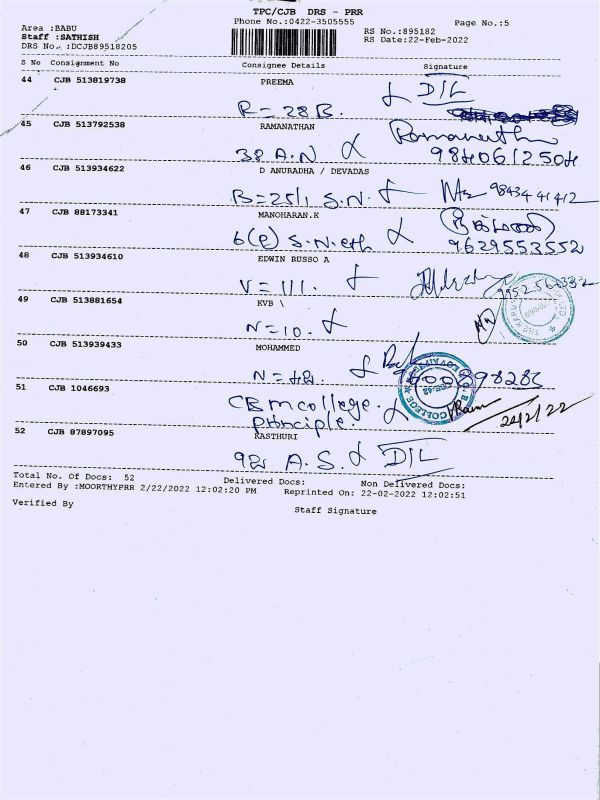 TPC/CJB DRS - PRR
Phone No.:0422-3505555 Page No.:5
Area :BABU
Staff :SATHISH RS No.:895182
DRS No.. :DCJB89518205 RS Date:22-Feb-2022
S No Consignment No Consignee Details Signature
44 CJB 513819738 PREEMA D/L
R = 28 B.
45 CJB 513792538 RAMANATHAN
38 A.N
46 CJB 513934622 D ANURADHA / DEVADAS
B=25/1 S.N. 98434 41412
47 CJB 88173341 MANOHARAN.K
6(e) S.N. 9629553552
48 CJB 513934610 EDWIN RUSSO A
V = 111.
49 CJB 513881654 KVB \
N=10.
50 CJB 513939433 MOHAMMED
51 CJB 1046693 CBM college.
principle. 22/2/22
52 CJB 87897095 KASTHURI
A.S. D/L
Total No. Of Docs: 52 Delivered Docs: Non Delivered Docs:
Entered By :MOORTHYPRR 2/22/2022 12:02:20 PM Reprinted On: 22-02-2022 12:02:51
Verified By Staff Signature